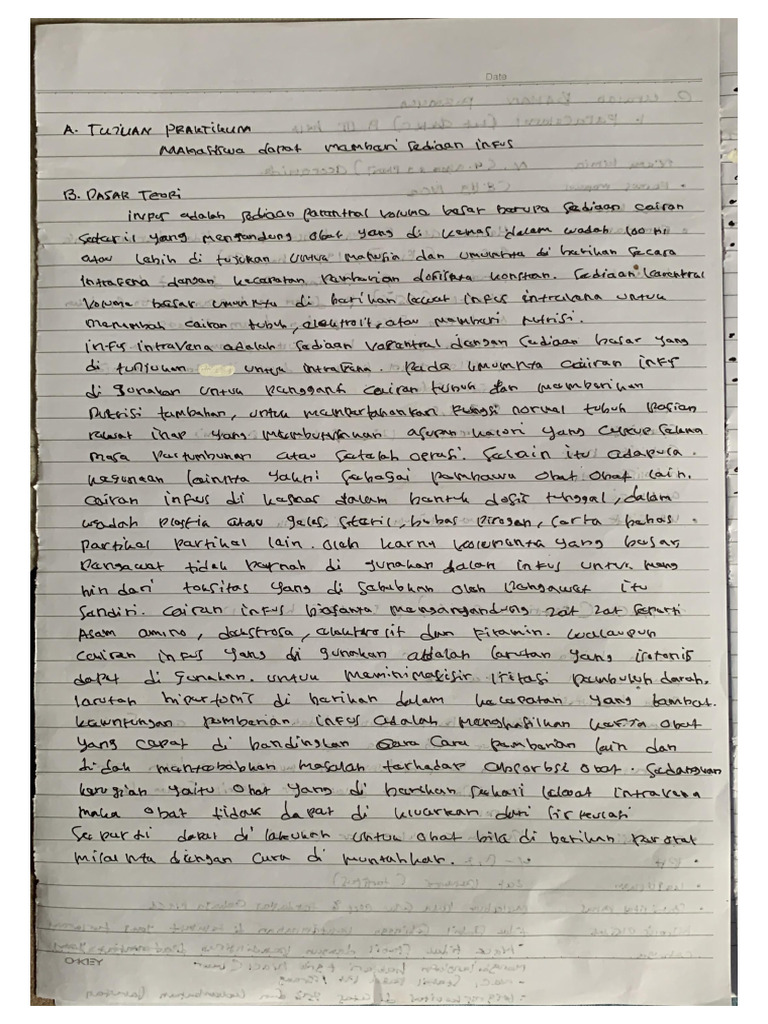 Date
A. TUJUAN PRAKTIKUM
MAHASISWA dapat mambari sediaan infus
B. DASAR TEORI
infus adalah sediaan parantral volume besar barupa sediaan cairan
Seteril yang mengandung obat yang di kemas dalam wadah 100 ml
atau lebih di tujukan untuk manusia dan umumnta di barikan secara
intrafena dangan kecapatan pambarian konstan. Sediaan parentral
volume besar umumnta di barikan lewat infus intravana untuk
menambah cairan tubuh, alektrolit, atau mambari nutrisi.
infus intravena adalah sediaan parantral dangan sediaan basar yang
di tunjukan untuk intrafena. Pada umumnta cairan infus
di gunakan untuk pangganti cairan tubuh dan mambarikan
Nutrisi tambahan, untuk mampartahankan fungsi normal tubuh pasian
rawat inap yang mambutuhkan asupan kalori yang cukup selama
masa partumbuhan atau satalah oprasi. Selain itu adapula
kegunaan lainnta yakni sabagai pambawa obat obat lain.
Cairan infus di kamas dalam bantuk dosis tunggal, dalam
wadah plastik atau gelas, steril, babas pirogan, sarta babas
partikal partikal lain. oleh karna volumenta yang basar,
pangawat tidak parnah di gunakan dalam infus untuk mang
hindari toksitas yang di sababkan olah pangawat itu
sandiri. Cairan infus biasanta mangangandung zat zat saparti
Asam amino, dakstrosa, alaktrosit dan fitamin. walaupun
cairan infus yang di gunakan adalah larutan yang isotonis
dapat di gunakan. untuk maminimasisir iritasi pambuluh darah.
larutan hipartonis di barikan dalam kacapatan yang lambat.
keuntungan pambarian infus adalah manghasilkan karja obat
yang capat di bandingkan cara cara pambarian lain dan
tidak mantababkan masalah tarhadap absorbsi obat. Sadangkan
karugian yaitu obat yang di barikan sakali lawat intravena
maka obat tidak dapat di kluarkan dari sirkulasi
Saparti dapat di lakukan untuk obat bila di barikan paroral
misalnta dangan cara di muntahkan.